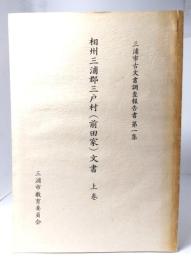 三浦市古文書調査報告書第一集
相州三浦郡三戸村(前田家)文書 上巻
三浦市教育委員会